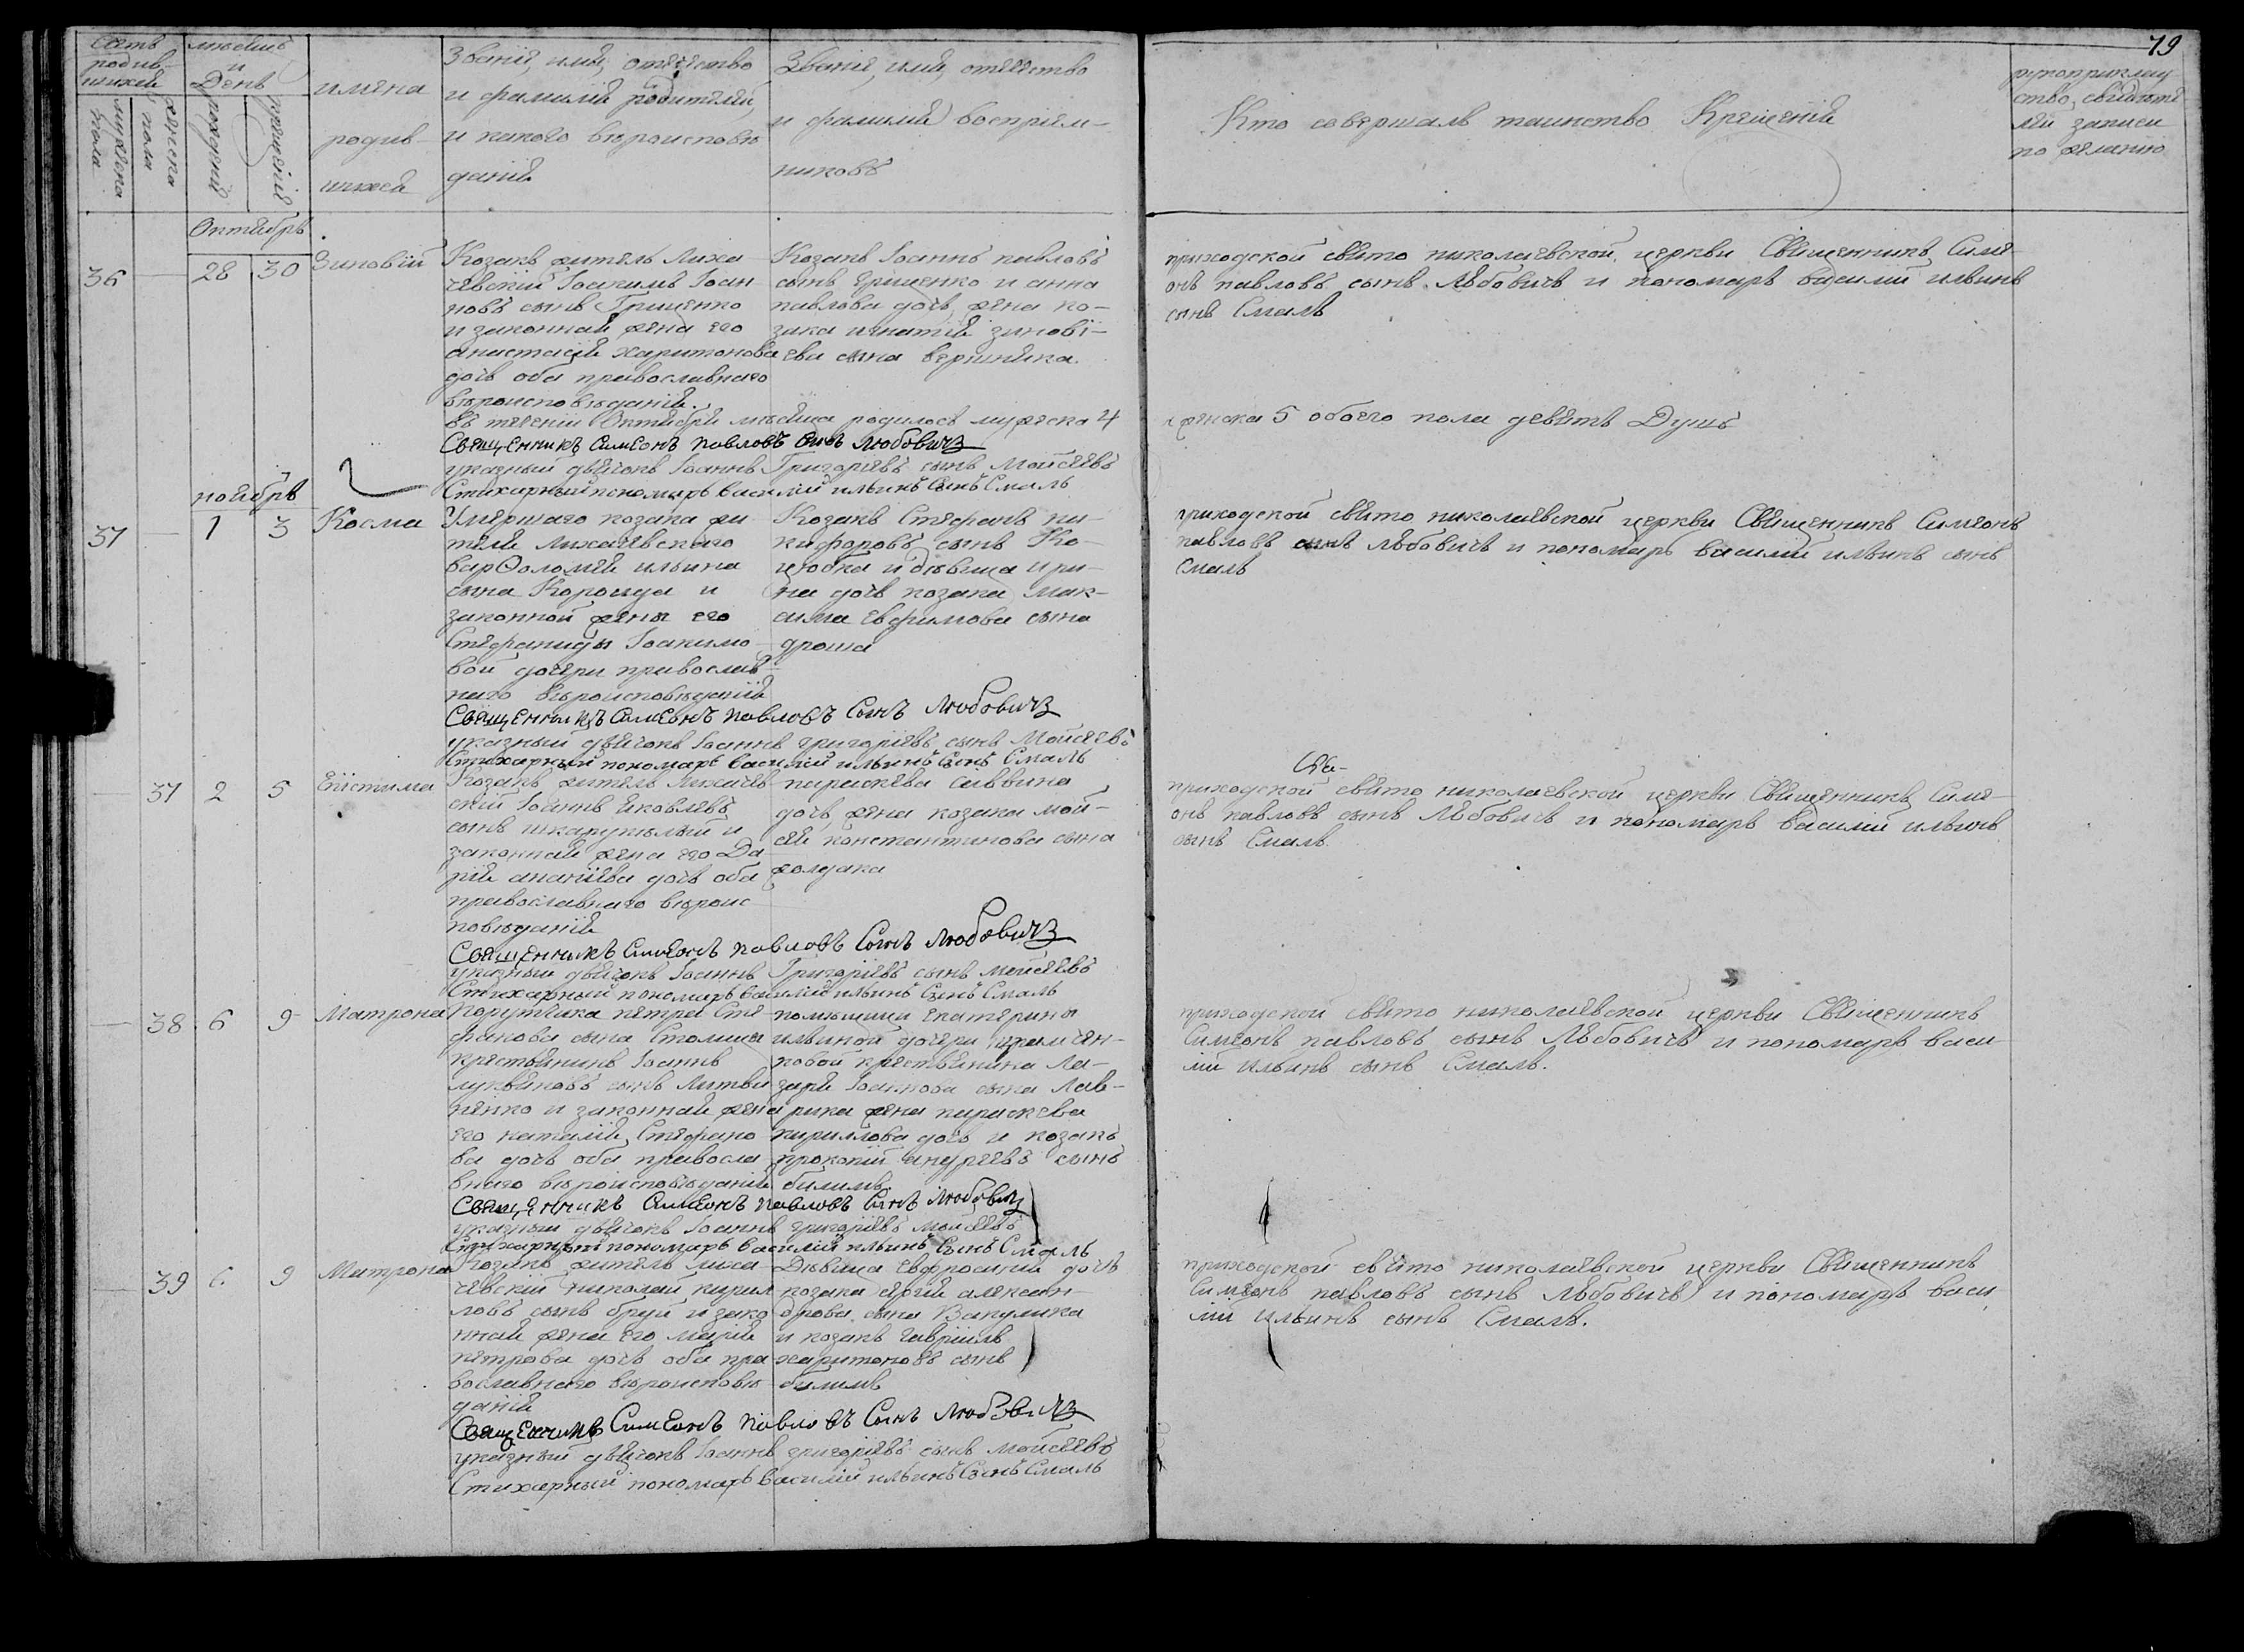 79
счетъ родив-шихся
мужеска пола
женска пола
мѣсяцъ и День
рожденія
крещенія
имена родив-шихся
Званіе, имя, отечество
и фамилія родителей,
и какого вѣроисповѣ
данія
Званіе, имя, отечество
и фамилія воспріем-
никовъ
Кто совершалъ таинство Крещенія
рукоприклад
ство, свидѣте
лей записи
по желанію
Октябрь
36 28 30 Зиновій
Козакъ житель Лиха
чевскій Іоакимъ Іоан
новъ сынъ Грищенко
и законная жена его
анастасія харитонова
дочь оба православнаго
вѣроисповѣданія.
Козакъ Іоаннъ павловъ
сынъ Ерищенко и анна
павлова дочь жена ко-
зака игнатія зиновї-
ева сына вершника.
приходской свято николаевской церкви Священникъ Симе-
онъ павловъ сынъ Любовичъ и пономарь василій ильинъ
сынъ Смаль
въ теченіи Октября мѣсяца родилось мужеска 4
женска 5 обоего пола девять Душъ
Священникъ Симеонъ Павловъ Сынъ Любовичъ
указный дьячокъ Іоаннъ Григорїевъ сынъ Мойсеевъ
Стихарный пономарь василїй ильинъ Сынъ Смаль
ноябрь
37 1 3 Косма
Умершаго козака жи
теля лихачевского
варѳоломея ильина
сына Короида и
законной жены его
Стефаниды Іоакимо
вой дочери православ
наго вѣроисповѣданїя
Козакъ Стефанъ ни-
кифоровъ сынъ Ко-
цюбка и дѣвица ири-
на дочь козака Мак-
сима Евфимова сына
дроша
приходской свято николаевской церкви Священникъ Симеонъ
павловъ сынъ любовичъ и пономарь василій ильинъ сынъ
Смаль
Священникъ Симеонъ Павловъ Сынъ Любовичъ
указный дьячокъ Іоаннъ григорїевъ сынъ Мойсеевъ
Стихарный пономарь василїй ильинъ Сынъ Смаль
37 2 5 Епистима
Козакъ житель лихачев
скій Іоаннъ яковлевъ
сынъ шкарупылый и
законная жена его Да
рія ананїева дочь оба
православнаго вѣроис
повѣданїя
параскева саввина
дочь жена козака мой-
сея константинова сына
солдака
приходской свято николаевской церкви Священникъ Симе-
онъ павловъ сынъ Любовичъ и пономарь василій ильинъ
сынъ Смаль.
Священникъ Симеонъ Павловъ Сынъ Любовичъ
указный дьячокъ Іоаннъ Григорїевъ сынъ мойсеевъ
Стихарный пономарь василїй ильинъ Сынъ Смаль
38 6 9 Матрона
Порутчика петра Сте
фанова сына Столица
крестьянинъ Іоаннъ
лукьяновъ сынъ литви
ненко и законная жена
его наталія Стефано
ва дочь оба правосла
внаго вѣроисповѣданїя
помѣщици екатерины
ильиной дочери
крестьянина Ла-
заря Іоаннова сына Лав-
рика жена параскева
кириллова дочь и козакъ
прокопій андреевъ сынъ
билимъ.
приходской свято николаевской церкви Священникъ
Симеонъ павловъ сынъ Любовичъ и пономарь васи
лій ильинъ сынъ Смаль.
Священникъ Симеонъ Павловъ Сынъ Любовичъ
указный дьячокъ Іоаннъ григорїевъ мойсеевъ
Стихарный пономарь василїй ильинъ Сынъ Смаль
39 6 9 Матрона
Козакъ житель лиха
чевскій николай кирил
ловъ сынъ бруй и зако
нная жена его марїя
петрова дочь оба пра
вославнаго вѣроисповѣ
данїя
Дѣвица евфросинїя дочь
козака сергїя алексан-
дрова сына Вакулика
и козакъ гаврїилъ
харитоновъ сынъ
билимъ
приходской свято николаевской церкви Священникъ
Симеонъ павловъ сынъ Любовичъ и пономарь васи
лій ильинъ сынъ Смаль.
Священникъ Симеонъ Павловъ Сынъ Любовичъ
указный дьячокъ Іоаннъ григорїевъ сынъ мойсеевъ
Стихарный пономарь василїй ильинъ Сынъ Смаль